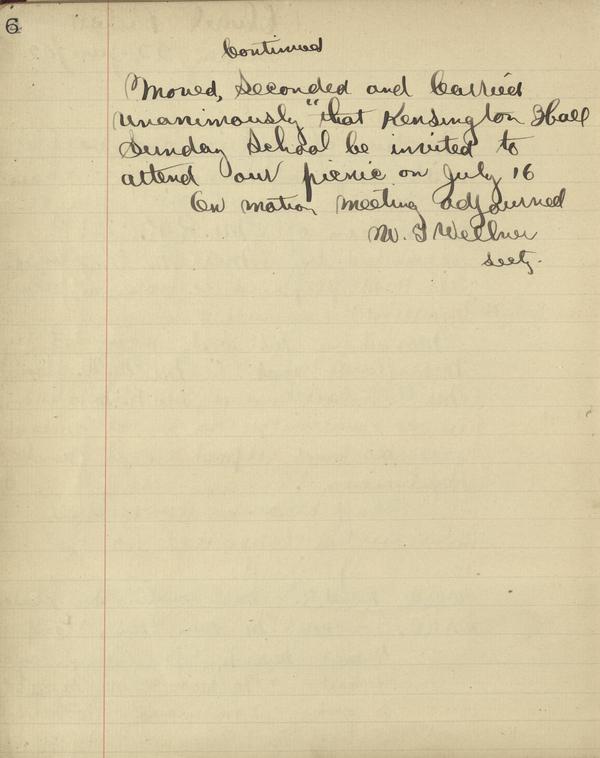 6
Continued
Moved, Seconded and Carried
unanimously "that Kensington Hall
Sunday School be invited to
attend our picnic on July 16
On motion meeting adjourned
W. G Wellner
secty.